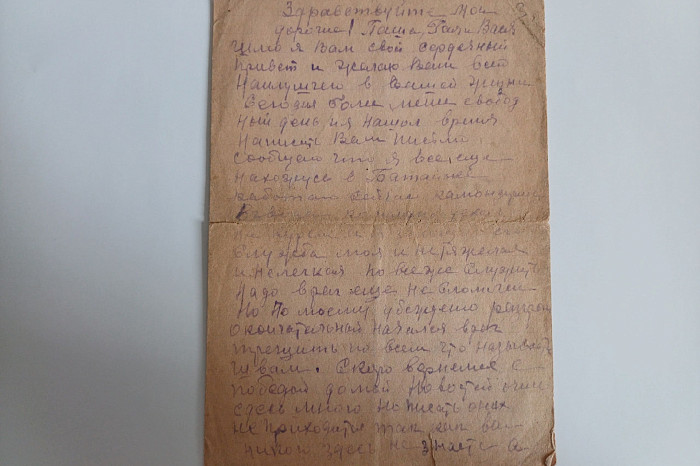 Здравствуйте мои
дорогие! Паша, Галя Вася
Шлю я Вам свой сердечный
привет и желаю Вам всего
Наилутчего в Вашей жизни
Сегодня меня свобод
ный день, и я нашол время
Написать Вам письмо.
Сообщаю что я все еще
нахожусь в Батайске
работаю сейчас командиром
Служба моя и не тяжелая
и нелегкая но все же служить
Надо враг еще не сломлен
Но По моему убеждению
окончательный начался враг
трещить по всем что называется
швам. Скоро вернемся с
победой домой Новостей очень
здесь много но писать о них
не приходится так как вы
никого здесь не знаете